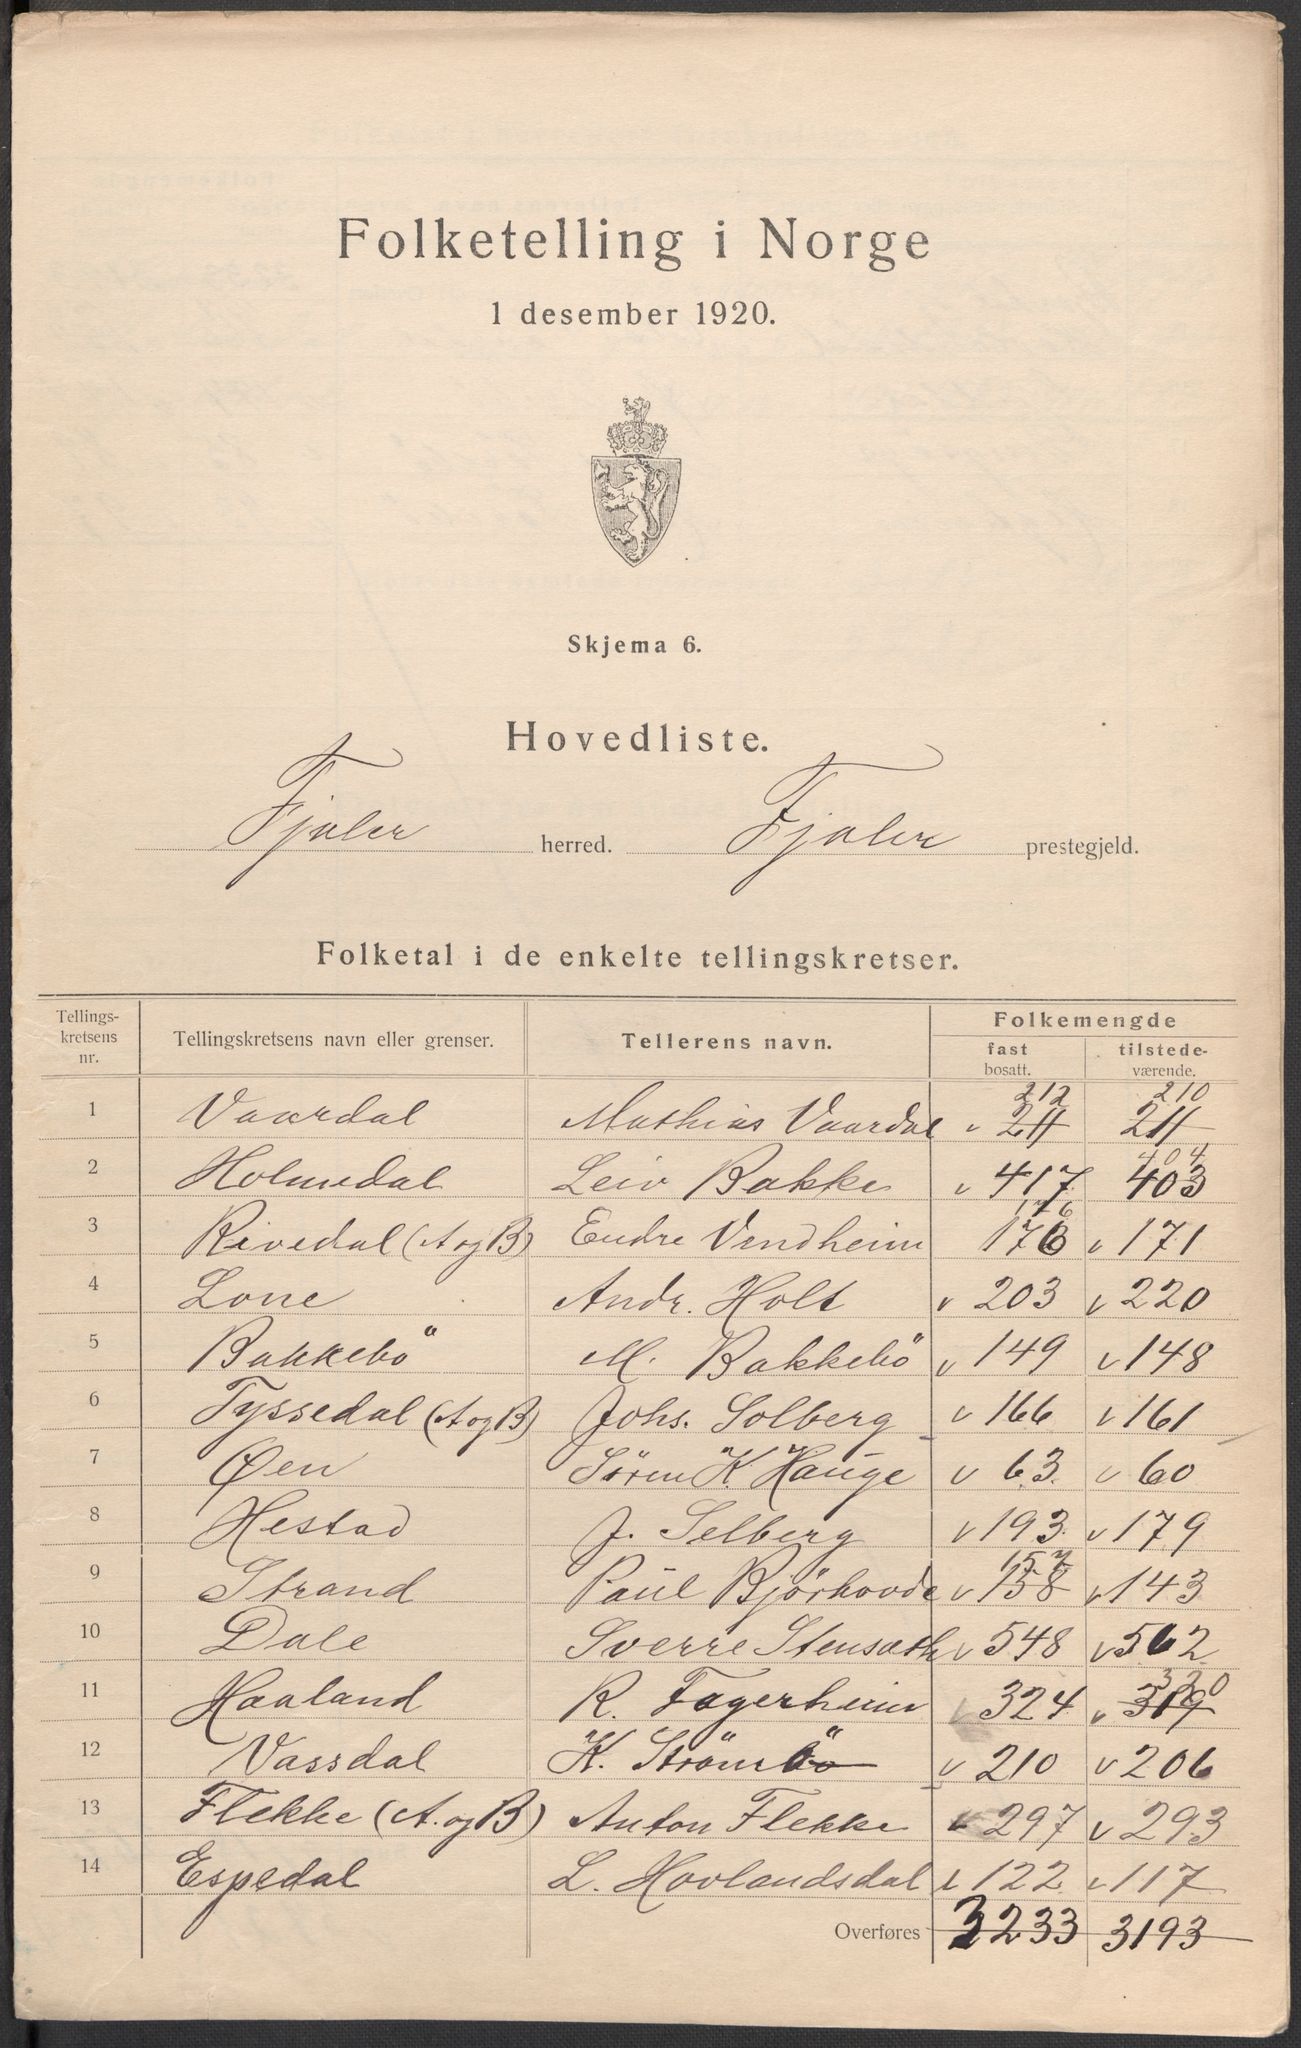 Folketelling i Norge
1 desember 1920.
Skjema 6.
Hovedliste.
Fjaler herred. Fjaler prestegjeld.
Folketal i de enkelte tellingskretser.
Tellings-kretsens nr. Tellingskretsens navn eller grenser. Tellerens navn. Folkemengde
fast bosatt. tilstede-værende.
212 210
1 Vaardal Mathias Vaardal v 211 211
404
2 Holmedal Leiv Bakke v 417 403
176
3 Rivedal (A og B) Endre Vendheim 176 v 171
4 Lone Andr. Holt v 203 v 220
5 Bakkebö M. Bakkebö v 149 v 148
6 Tyssedal (A og B) Johs. Solberg v 166 v 161
7 Øen Sören K. Hauge v 63 v 60
8 Hestad J. Selberg v 193 v 179
157
9 Strand Paul Bjørhovde v 158 v 143
10 Dale Sverre Stensæth v 548 v 562
320
11 Haaland R. Fagerheim v 324 v 319
12 Vassdal K. Strömbö v 210 v 206
13 Flekke (A. og B) Anton Flekke v 297 v 293
14 Espedal L. Hovlandsdal v 122 v 117
Overføres 3233 3193